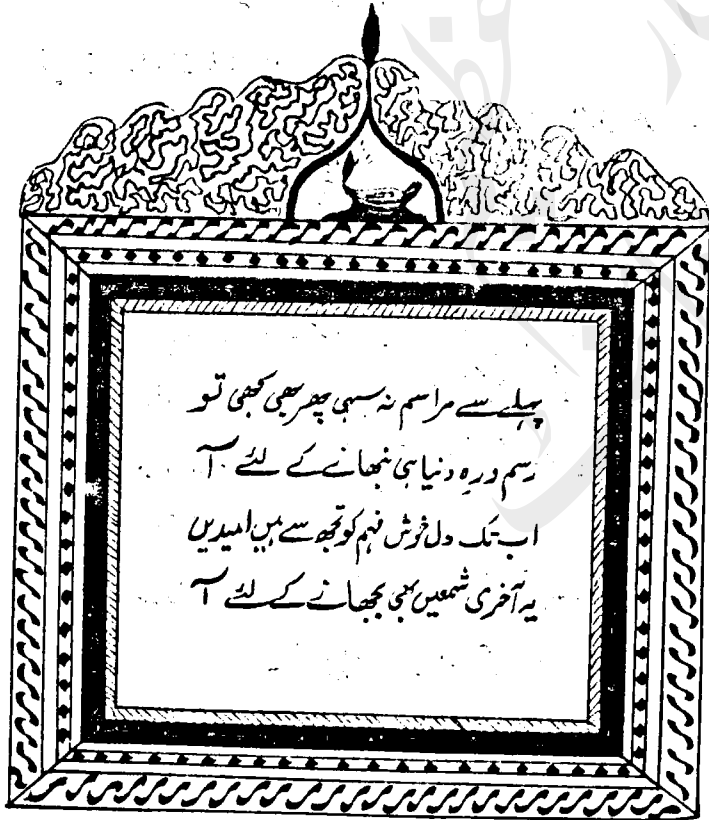 پہلے سے مراسم نہ سہی پھر بھی کبھی تو
رسم درہ دنیا ہی نبھانے کے لئے آ
اب تک دل خوش فہم کو تجھ سے ہیں امیدیں
یہ آخری شمعیں بھی بجھانے کے لئے آ